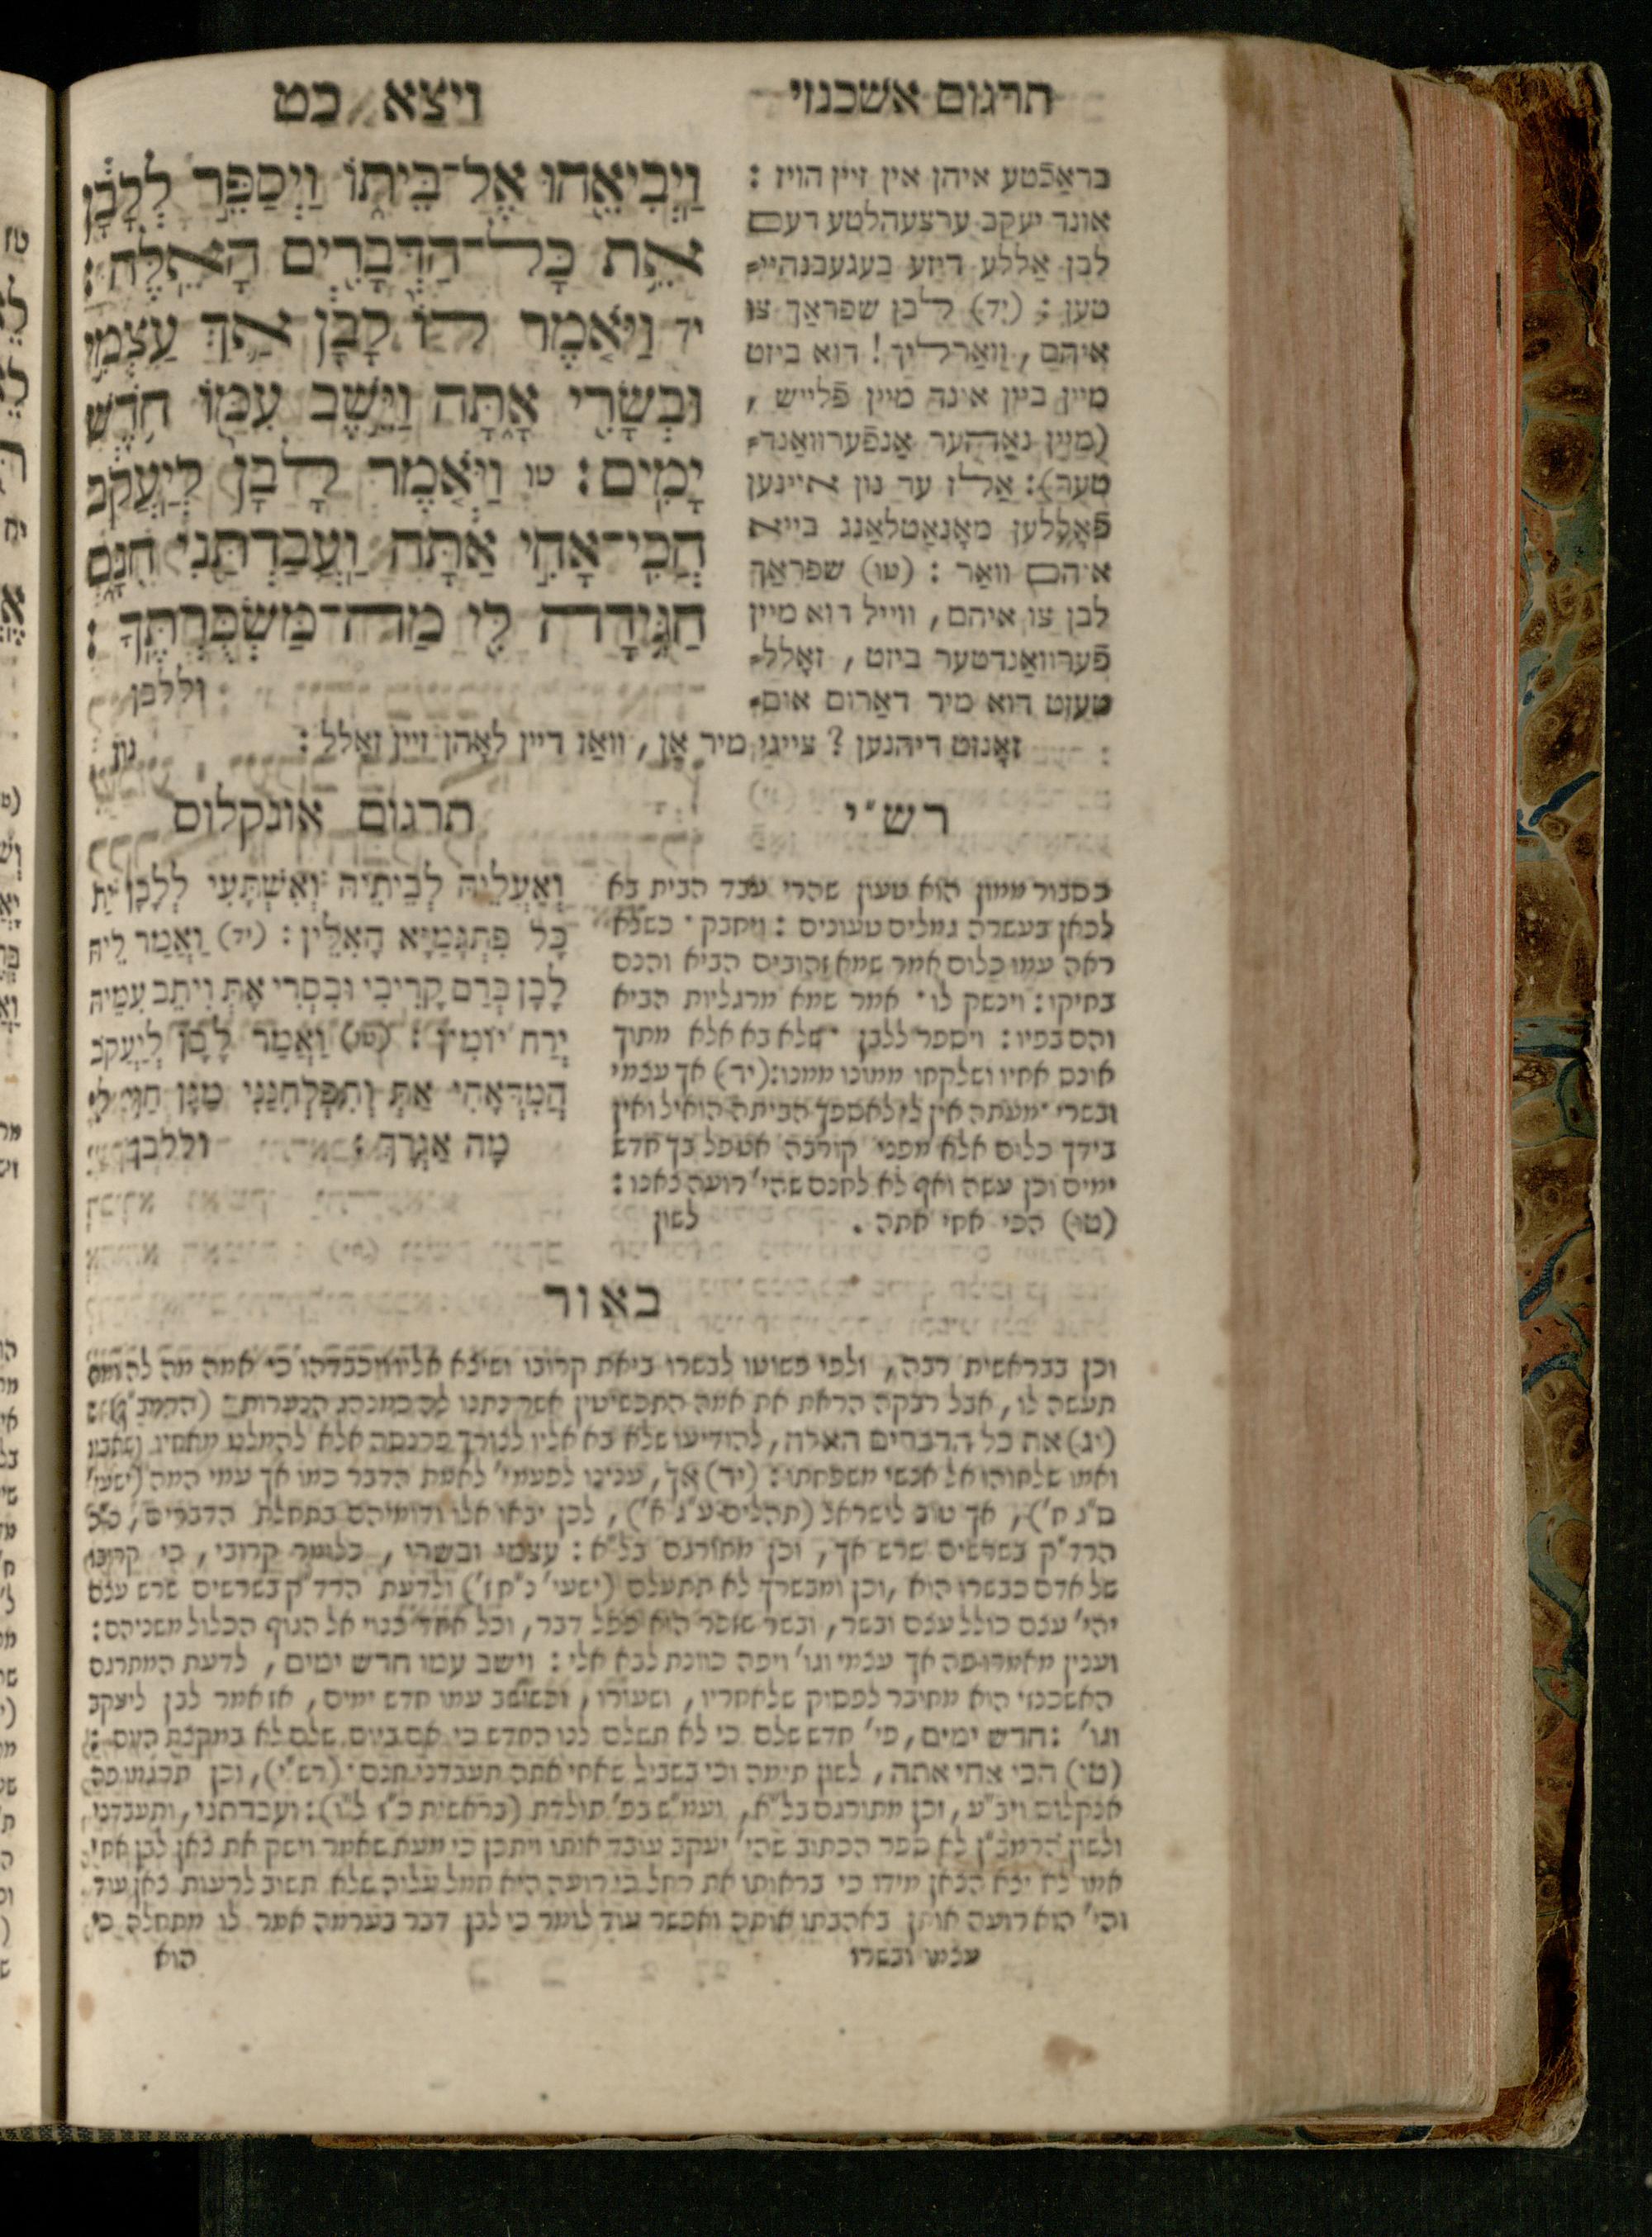 תרגום אשכנזי
ויצא כט
וַיְבִיאֵהוּ אֶל־בֵּיתוֹ וַיְסַפֵּר לְלָבָן
אֵת כָּל־הַדְּבָרִים הָאֵלֶּה׃
יד וַיֹּאמֶר לוֹ לָבָן אַךְ עַצְמִי
וּבְשָׂרִי אָתָּה וַיֵּשֶׁב עִמּוֹ חֹדֶשׁ
יָמִים׃ טו וַיֹּאמֶר לָבָן לְיַעֲקֹב
הֲכִי־אָחִי אַתָּה וַעֲבַדְתַּנִי חִנָּם
הַגִּידָה לִּי מַה־מַּשְׂכֻּרְתֶּךָ׃
וללבן
בראַכֿטע איהן אין זיין הויז :
אונד יעקב ערצעהלטע דעם
לבן אַללע דיזע בעגעבנהיי-
טען : (יד) לבן שפראַך צו
איהם, וואַרליך! דוא ביזט
מיין ביין אונד מיין פֿלייש,
(מיין נאַהער אַנפֿערוואַנד-
טער): אַלז ער נון איינען
פֿאָללען מאָנאַטלאַנג בייא
איהם וואַר : (טו) שפראַך
לבן צו איהם, ווייל דוא מיין
פֿערוואַנדטער ביזט, זאָלל-
טעזט דוא מיר דאַרום אום-
זאָנזט דיהנען? צייגי מיר אָן, וואַז דיין לאָהן זיין זאָלל :
רש"י
כסבור ממון הוא טעון שהרי עבד הבית בא
לכאן בעשרה גמלים טעונים : ויחבק · כשלא
ראה עמו כלום אמר שמא זהובים הביא והנם
בחיקו : וינשק לו · אמר שמא מרגליות הביא
והם בפיו : ויספר ללבן · שלא בא אלא מתוך
אונס אחיו ושלקחו ממונו ממנו: (יד) אך עצמי
ובשרי · מעתה אין לי לאספך הביתה הואיל ואין
בידך כלום אלא מפני קורבה אטפל בך חדש
ימים וכן עשה ואף לא לחנם שהי' רועה צאנו :
(טו) הכי אחי אתה .   לשון
תרגום אונקלוס
וְאַעֲלֵיהּ לְבֵיתֵיהּ וְאִשְׁתָּעִי לְלָבָן יַת
כָּל פִּתְגָּמַיָּא הָאִלֵּין : (יד) וַאֲמַר לֵיהּ
לָבָן בְּרַם קָרִיבִי וּבִסְרִי אָתְּ וִיתֵב עִמֵּיהּ
יְרַח יוֹמִין : (טו) וַאֲמַר לָבָן לְיַעֲקֹב
הֲמִדְּאָחִי אַתְּ וְתִפְלְחִנַּנִי מַגָּן חַוִּי לִי
מָה אַגְרָךְ :   וללבן
באור
וכן בבראשית רבה, ולפי פשוטו לבשרו ביאת קרובו ושיצא אליו ויכבדהו כי אמה מה
תעשה לו, אבל רבקה הראת את אמה התכשיטין אשר נתנו לה כמנהג הנערות
(יג) את כל הדברים האלה, להודיעו שלא בא אליו לצורך פרנסה אלא להמלט מאחיו
ואמו שלחוהו אל אנשי משפחתו : (יד) אך, ענינו לפעמי' לאמת הדבר כמו אך עמי המה (ישעי'
ס"ג ח'), אך טוב לישראל (תהלים ע"ג א'), לכן יבאו אלו ודומיהם בתחלת הדברים,
הרד"ק בשרשים שרש אך, וכן מתורגם בל"א : עצמי ובשרי, כלומר קרובי, כי קרובו
של אדם כבשרו הוא, וכן ומבשרך לא תתעלם (ישעי' נ"ח ז') ולדעת הרד"ק בשרשים שרש עצם
יהי' עצם כולל עצם ובשר, ובשר שומר הוא דבר, וכל אחד כנוי אל הגוף הכלול משניהם :
וענין מאמרו פה אך עצמי וגו' ויפה כוונת לבא אלי : וישב עמו חדש ימים, לדעת המתרגם
האשכנזי הוא מחובר לפסוק שלאחריו, ושעורו, וכשישב עמו חדש ימים, אז אמר לבן ליעקב
וגו' : חדש ימים, פי' חדש שלם כי לא תשלם לנו החדש כי אם ביום שלם לא במקצת היום :
(טו) הכי אחי אתה, לשון תימה וכי בשביל שאחי אתה תעבדני חנם · (רש"י), וכן תרגמו פה
אנקלוס ויב"ע, וכן מתורגם בל"א, ועמ"ש בפ' תולדת (בראשית כ"ז ל"ו): ועבדתני, ותעבדני
ולשון הרמב"ן לא ספר הכתוב שהי' יעקב עובד אותו ויתכן כי מעת שאמר וישק את צאן לבן אחי
אמו לא יצא הצאן מידו כי בראותו את רחל כי רועה היא חמל עליה שלא תשוב לרעות צאן עוד
והי' הוא רועה אותן באהבתו אותה ואפשר עוד לומר כי לבן דבר בערמה אמר לו מתחלה כי
עצמו ובשרו   הוא